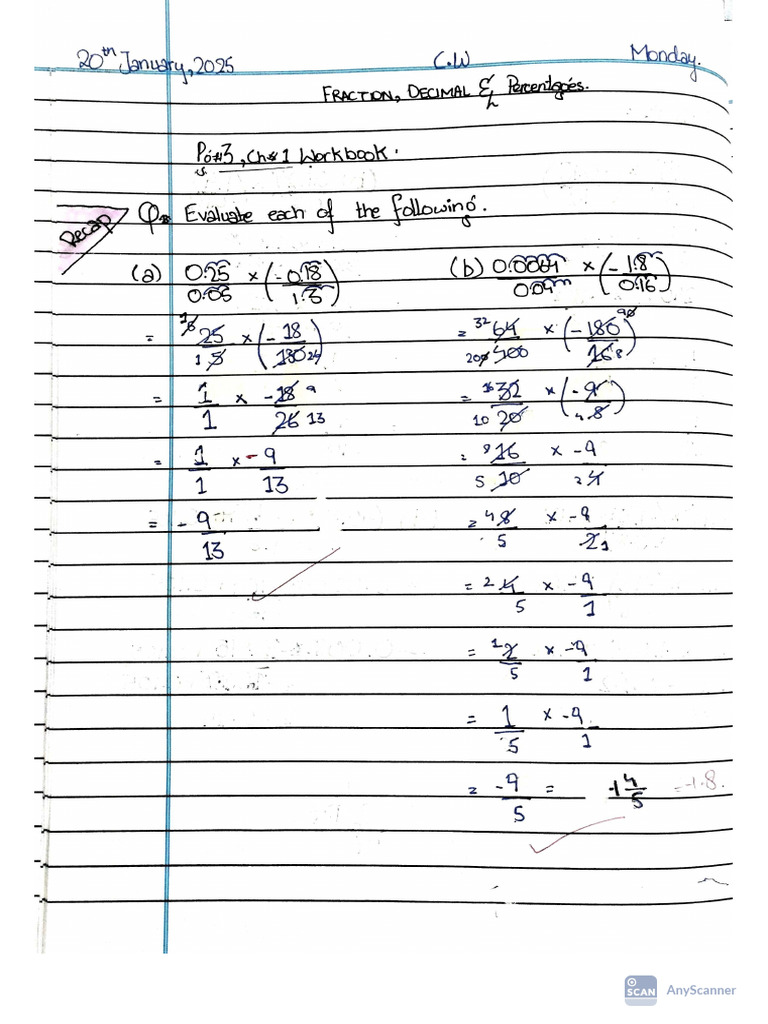 20th January, 2025 C.W Monday.
FRACTION, DECIMAL & Percentages.
Pg#3, Ch#1 Workbook.
Recap
Q. Evaluate each of the following.
(a) 0.25/0.05 × (-0.18/1.3) (b) 0.0064/0.04 × (-1.8/0.16)
= 25/5 × (-18/130) = 64/400 × (-180/16)
= 1/1 × -18/26 = 32/20 × (-9/8)
= 1/1 × -9/13 = 16/10 × -9/4
= -9/13 = 8/5 × -9/2
= 4/5 × -9/1
= 2/5 × -9/1
= 1/5 × -9/1
= -9/5 = -1 4/5 = -1.8.
SCAN AnyScanner